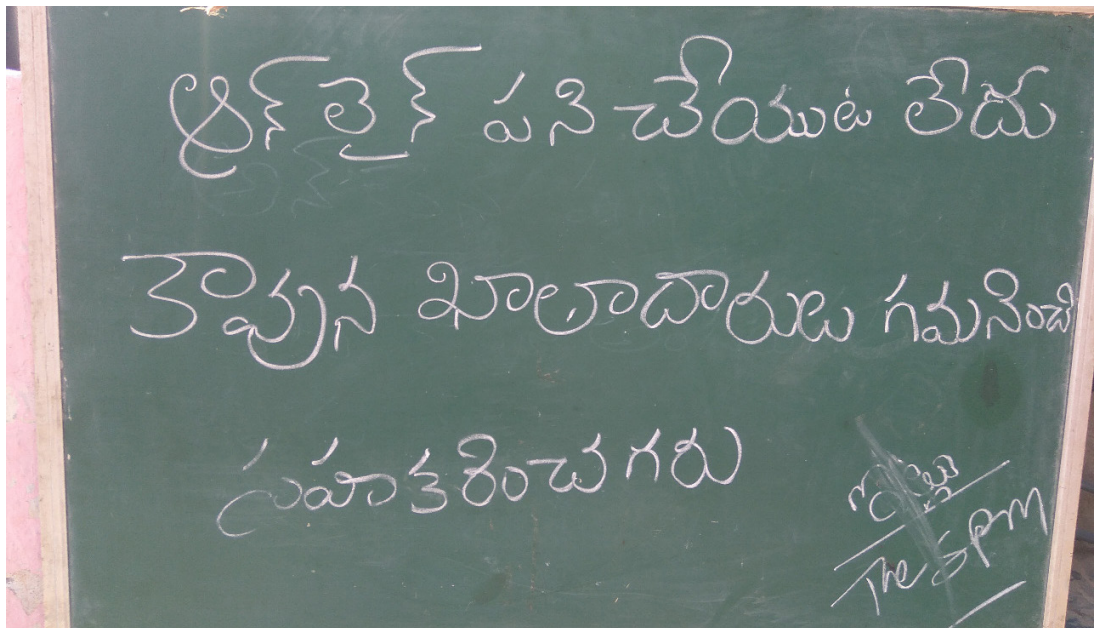 ఆన్ లైన్ పని చేయుట లేదు
కావున ఖాతాదారులు గమనించి
సహకరించగరు
ఇట్లు
The SPM